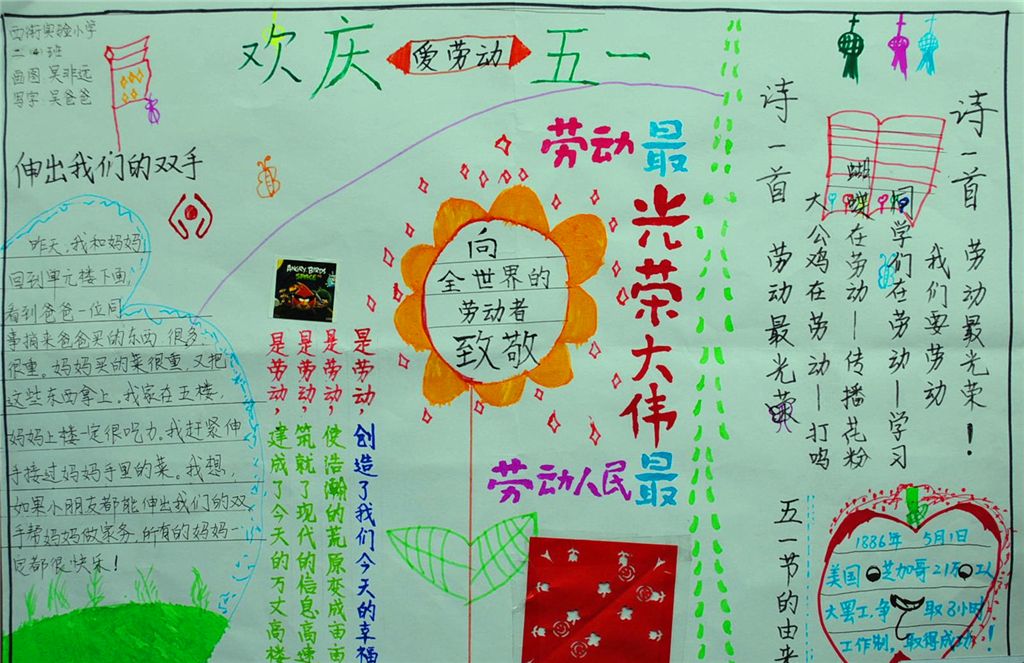 西街实验小学
二(4)班
画图 吴非远
写字 吴爸爸
欢庆
爱劳动
五一
伸出我们的双手
昨天,我和妈妈
回到单元楼下面,
看到爸爸一位同
事捎来爸爸买的东西,很多,
很重。妈妈买的菜很重,又把
这些东西拿上。我家在五楼,
妈妈上楼一定很吃力。我赶紧伸
手接过妈妈手里的菜。我想,
如果小朋友都能伸出我们的双
手帮妈妈做家务,所有的妈妈一
定都很快乐!
ANGRY BIRDS
SPACE
向
全世界的
劳动者
致敬
劳动最光荣
劳动人民最伟大
是劳动,创造了我们今天的幸福
是劳动,使浩瀚的荒原变成亩亩
是劳动,筑就了现代的信息高速
是劳动,建成了今天的万丈高楼
诗一首 劳动最光荣!
我们要劳动
同学们在劳动—学习
蝴蝶在劳动—传播花粉
大公鸡在劳动—打鸣
诗一首 劳动最光荣
五一节的由来
1886年 5月1日
美国芝加哥21万工人
大罢工,争取8小时
工作制,取得成功!